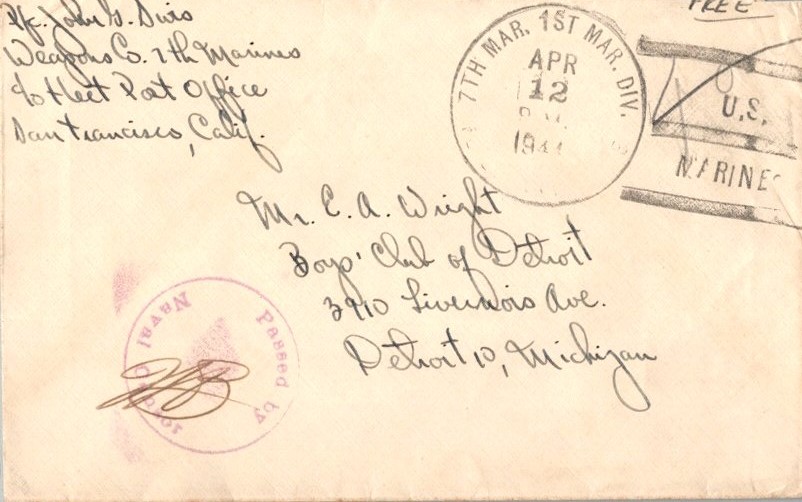 Pfc. John G. Divis
Weapons Co. 7th Marines
c/o Fleet Post Office
San Francisco, Calif.
FREE
7TH MAR. 1ST MAR. DIV.
APR
12
1944
U.S.
MARINES
Mr. C. A. Wright
Boys' Club of Detroit
3910 Livernois Ave.
Detroit 10, Michigan
Passed by
Naval